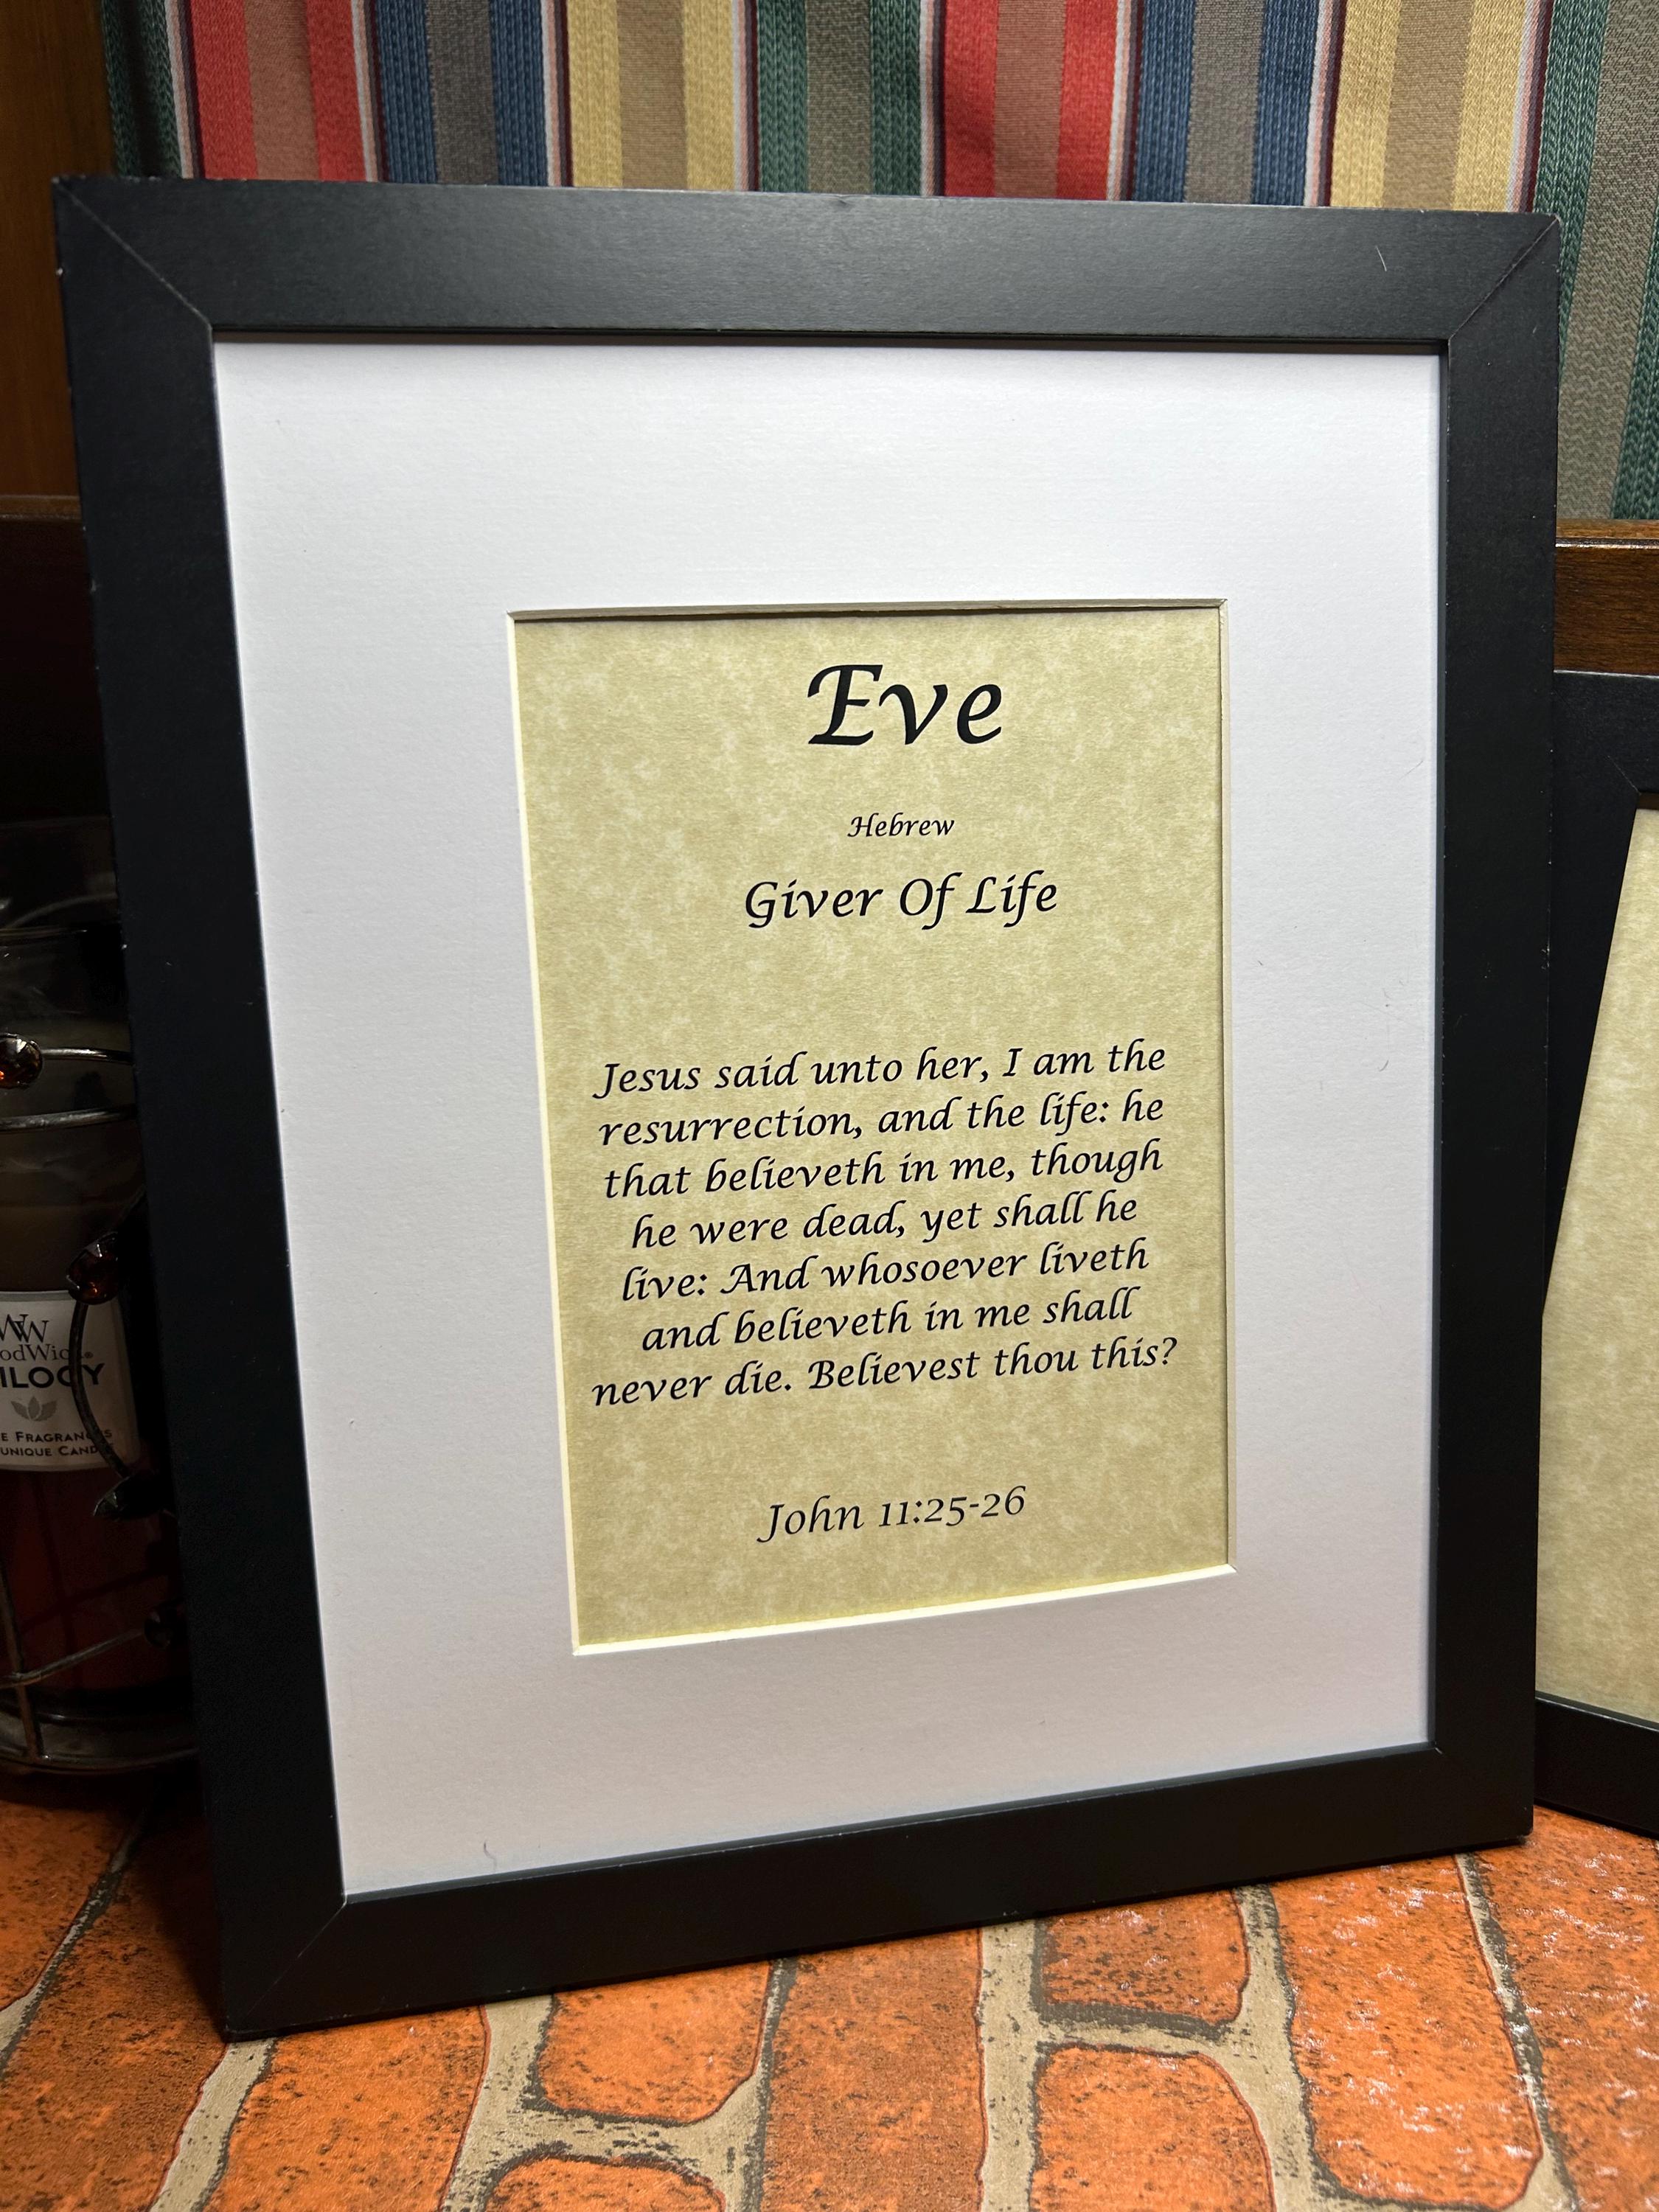 Eve
Hebrew
Giver Of Life
Jesus said unto her, I am the
resurrection, and the life: he
that believeth in me, though
he were dead, yet shall he
live: And whosoever liveth
and believeth in me shall
never die. Believest thou this?
John 11:25-26
WW
odWick®
ILOGY
E FRAGRANCES
UNIQUE CANDLE